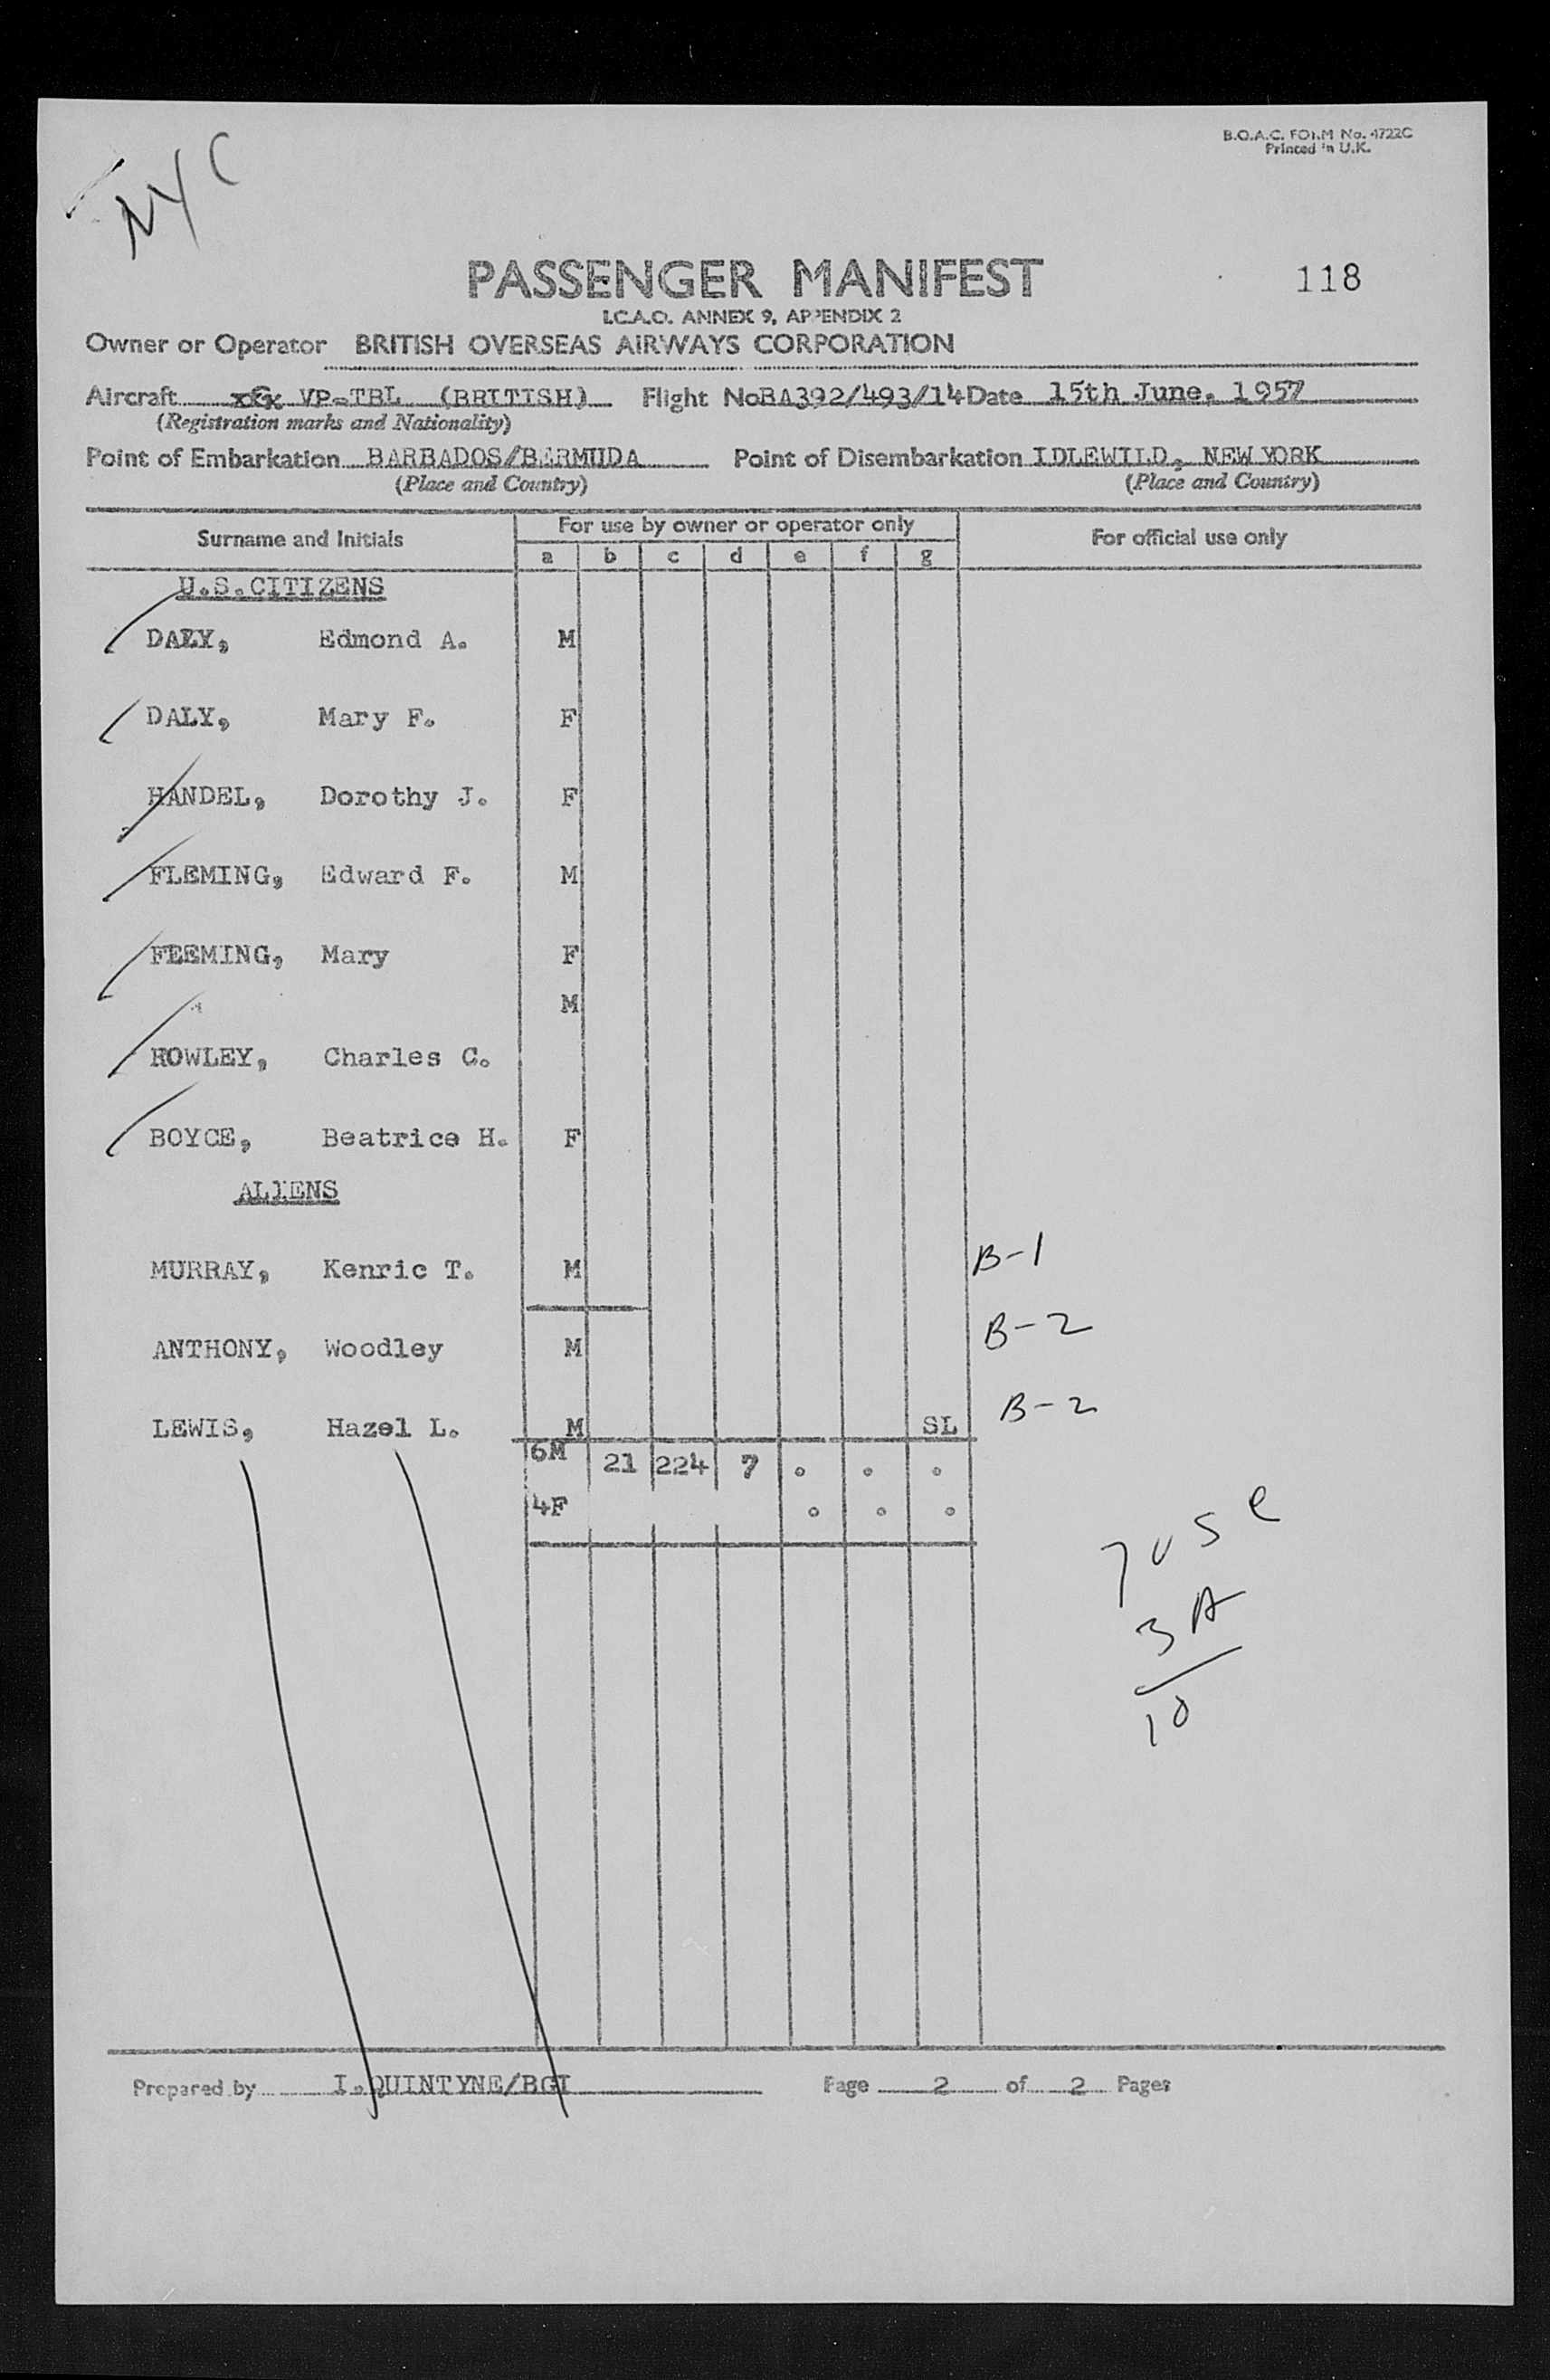 B.O.A.C. FORM No. 4722C
Printed in U.K.
NYC
PASSENGER MANIFEST 118
I.C.A.O. ANNEX 9, APPENDIX 2
Owner or Operator BRITISH OVERSEAS AIRWAYS CORPORATION
Aircraft VP-TBL (BRITISH) Flight No BA392/493/14 Date 15th June, 1957
(Registration marks and Nationality)
Point of Embarkation BARBADOS/BERMUDA Point of Disembarkation IDLEWILD, NEW YORK
(Place and Country) (Place and Country)
Surname and Initials For use by owner or operator only For official use only
a b c d e f g
U.S.CITIZENS
DALY, Edmond A. M
DALY, Mary F. F
HANDEL, Dorothy J. F
FLEMING, Edward F. M
FLEMING, Mary F
M
ROWLEY, Charles C.
BOYCE, Beatrice H. F
ALIENS
MURRAY, Kenric T. M B-1
ANTHONY, Woodley M B-2
LEWIS, Hazel L. M SL B-2
6M 21 224 7 . . .
4F . . .
7 USC
3 A
10
Prepared by I.QUINTYNE/BGI Page 2 of 2 Pages